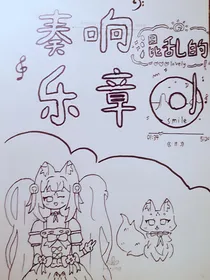 奏响
混乱的
乐章
smile